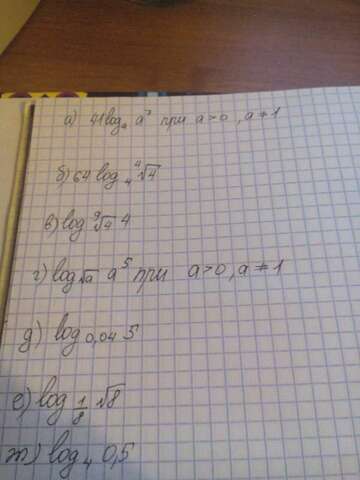 а) 41 log_a a^7 при a > 0, a ≠ 1
б) 64 log_4 ⁴√4
в) log_{⁹√4} 4
г) log_{√a} a^5 при a > 0, a ≠ 1
д) log_{0,04} 5
е) log_{1/8} √8
ж) log_4 0,5